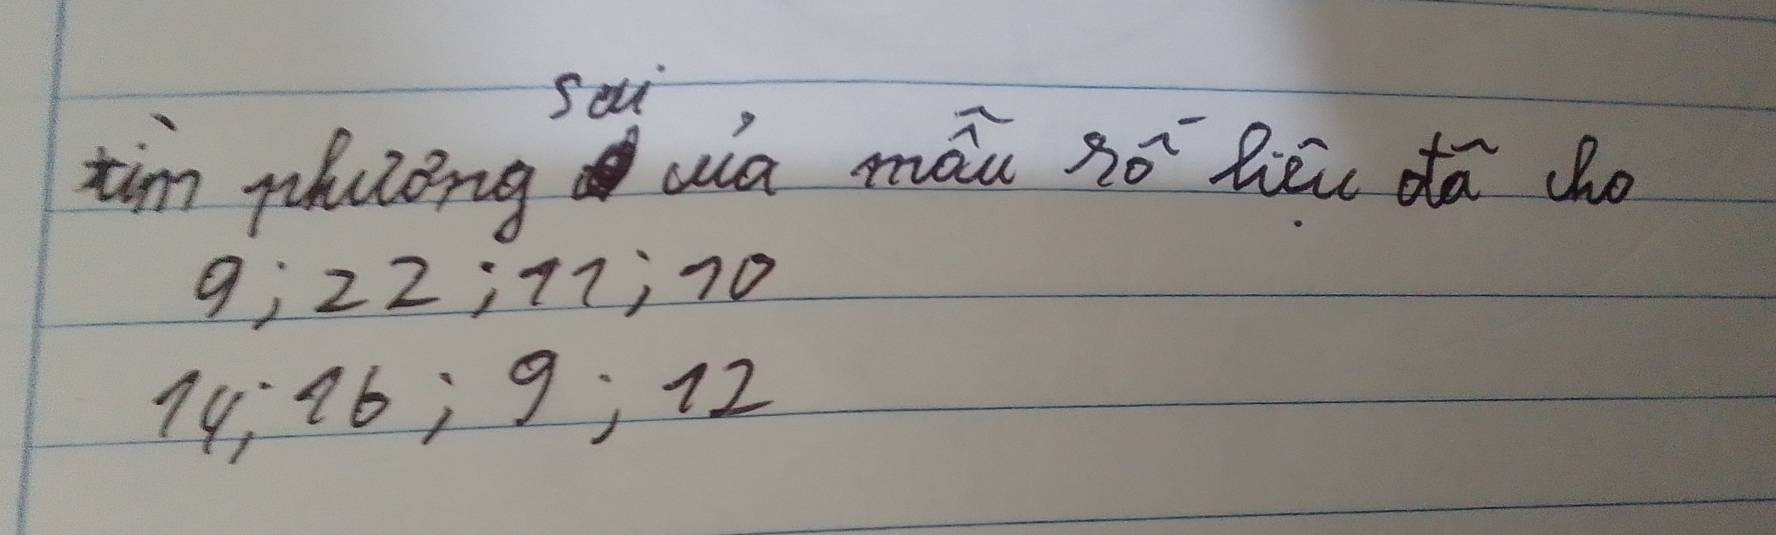 tìm phương sai của mẫu số liệu đã cho
9; 22; 11; 10
14; 16; 9; 12